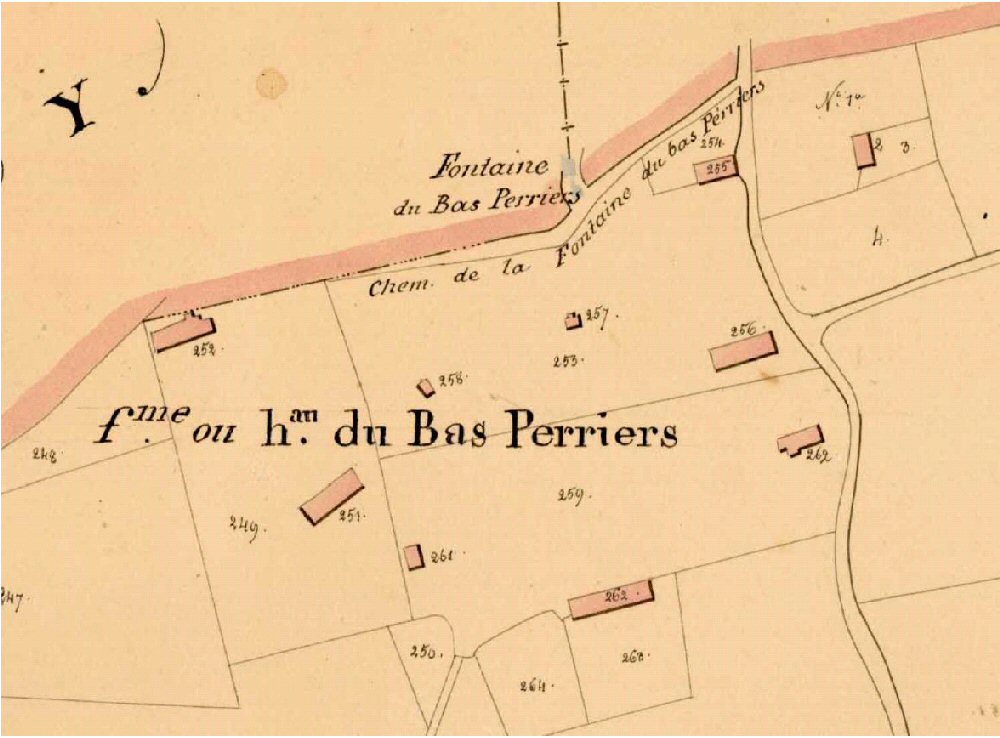 Y
Fontaine
du Bas Perriers
Chem. de la Fontaine du bas Pérriers
254.
255
2
3.
4.
252.
257.
256.
253.
258.
f.me ou h.au du Bas Perriers
262
248.
259.
249.
251.
261.
247.
262.
250.
264.